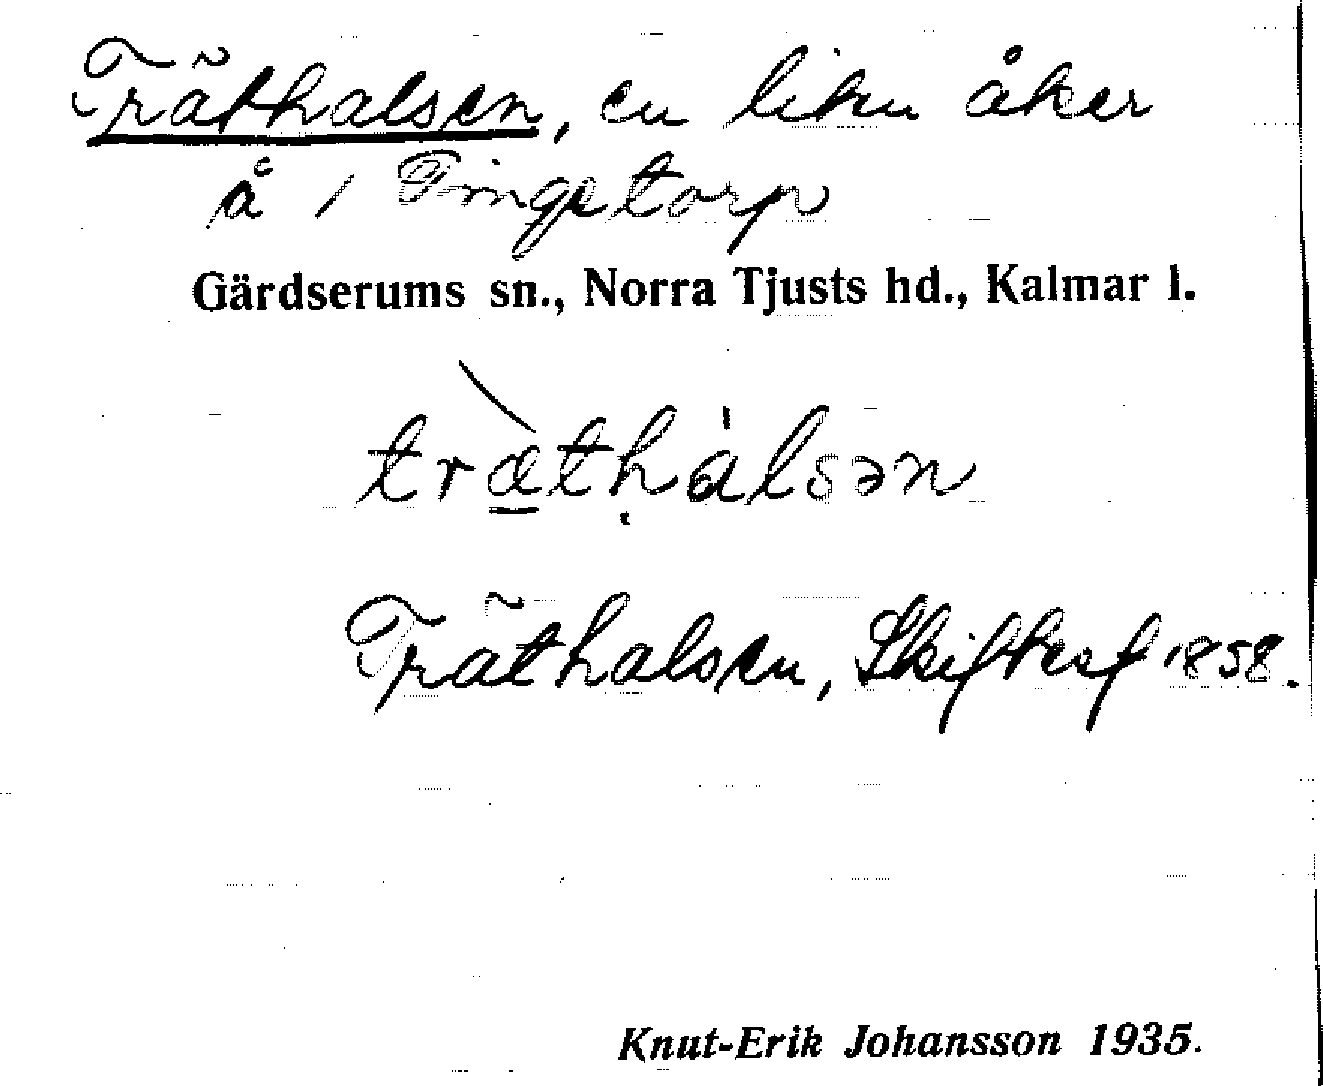 Träthalsen, en liten åker
å 1 Tingstorp
Gärdserums sn., Norra Tjusts hd., Kalmar l.
træ̀thálsən
Träthalsen, Skiftesf 1858.
Knut-Erik Johansson 1935.